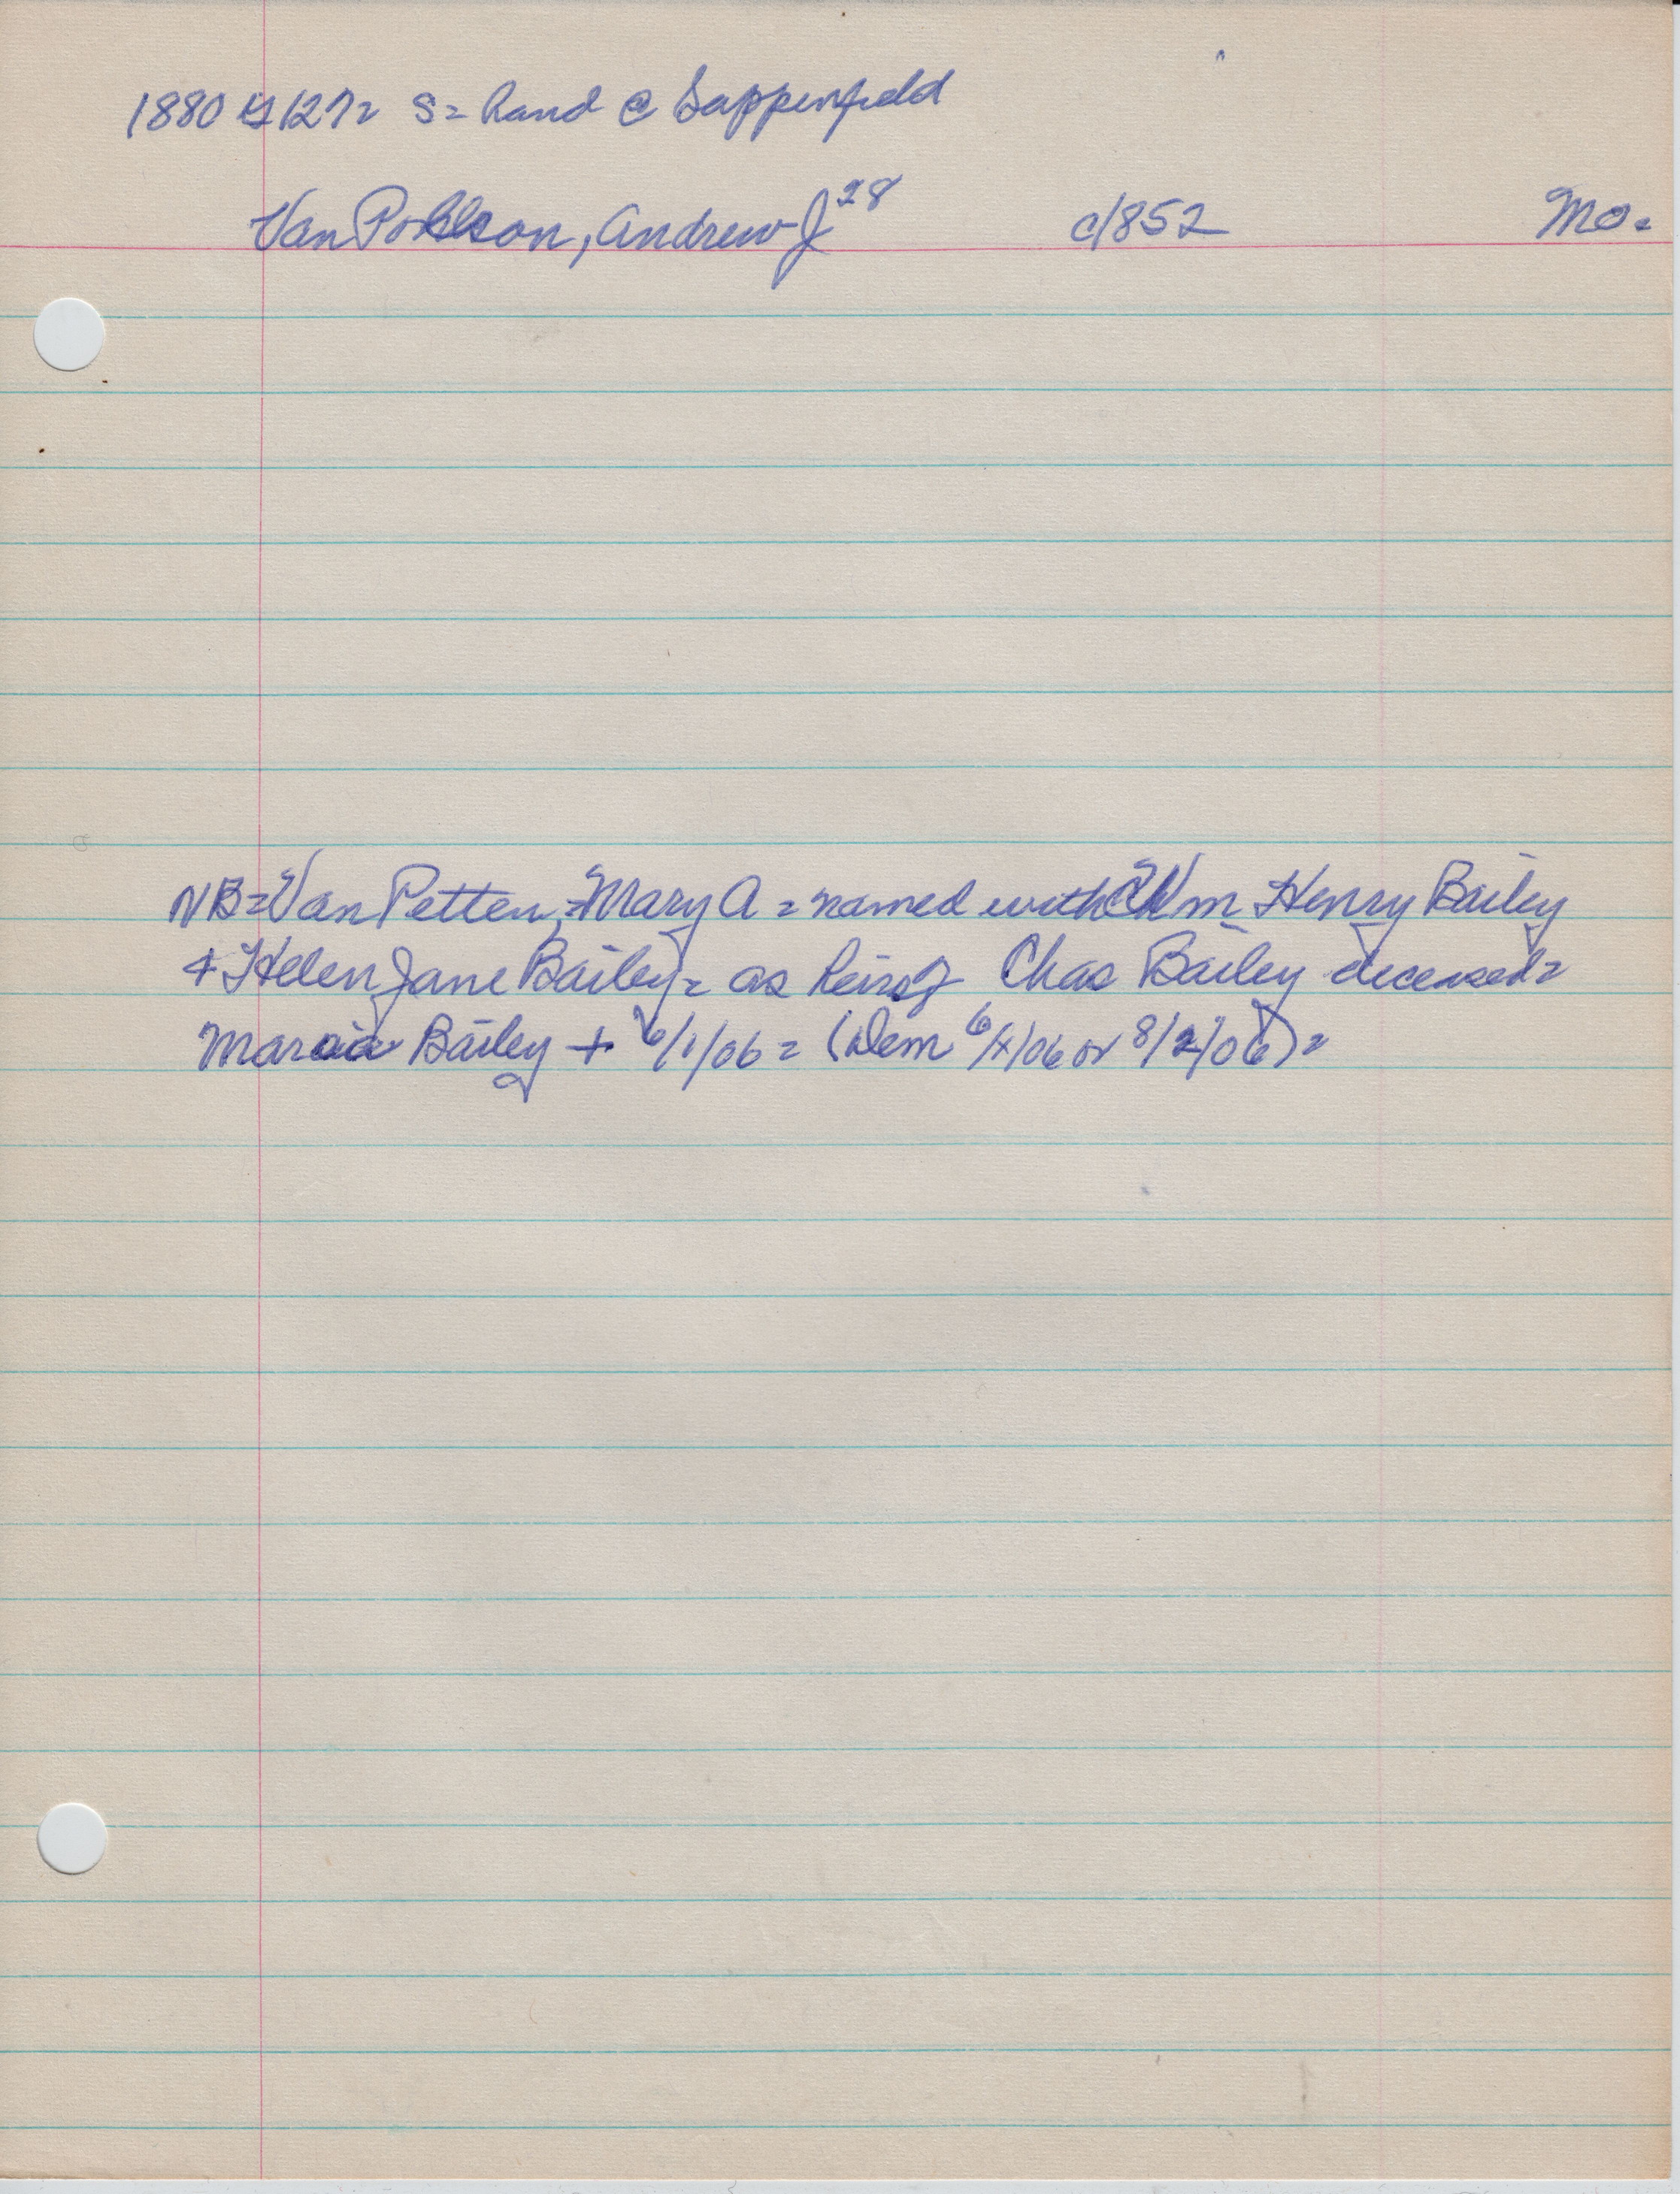 1880 127= S= hand @ Sappenfield
Van Pohlson, Andrew J 28 c/852 Mo.
NB= Van Petten, = Mary A = named with Wm Henry Bailey
+ Helen Jane Bailey = as heirs of Chas Bailey deceased =
Bailey + 6/1/06 = (Dem 6/ /06 or 8/2/06) =